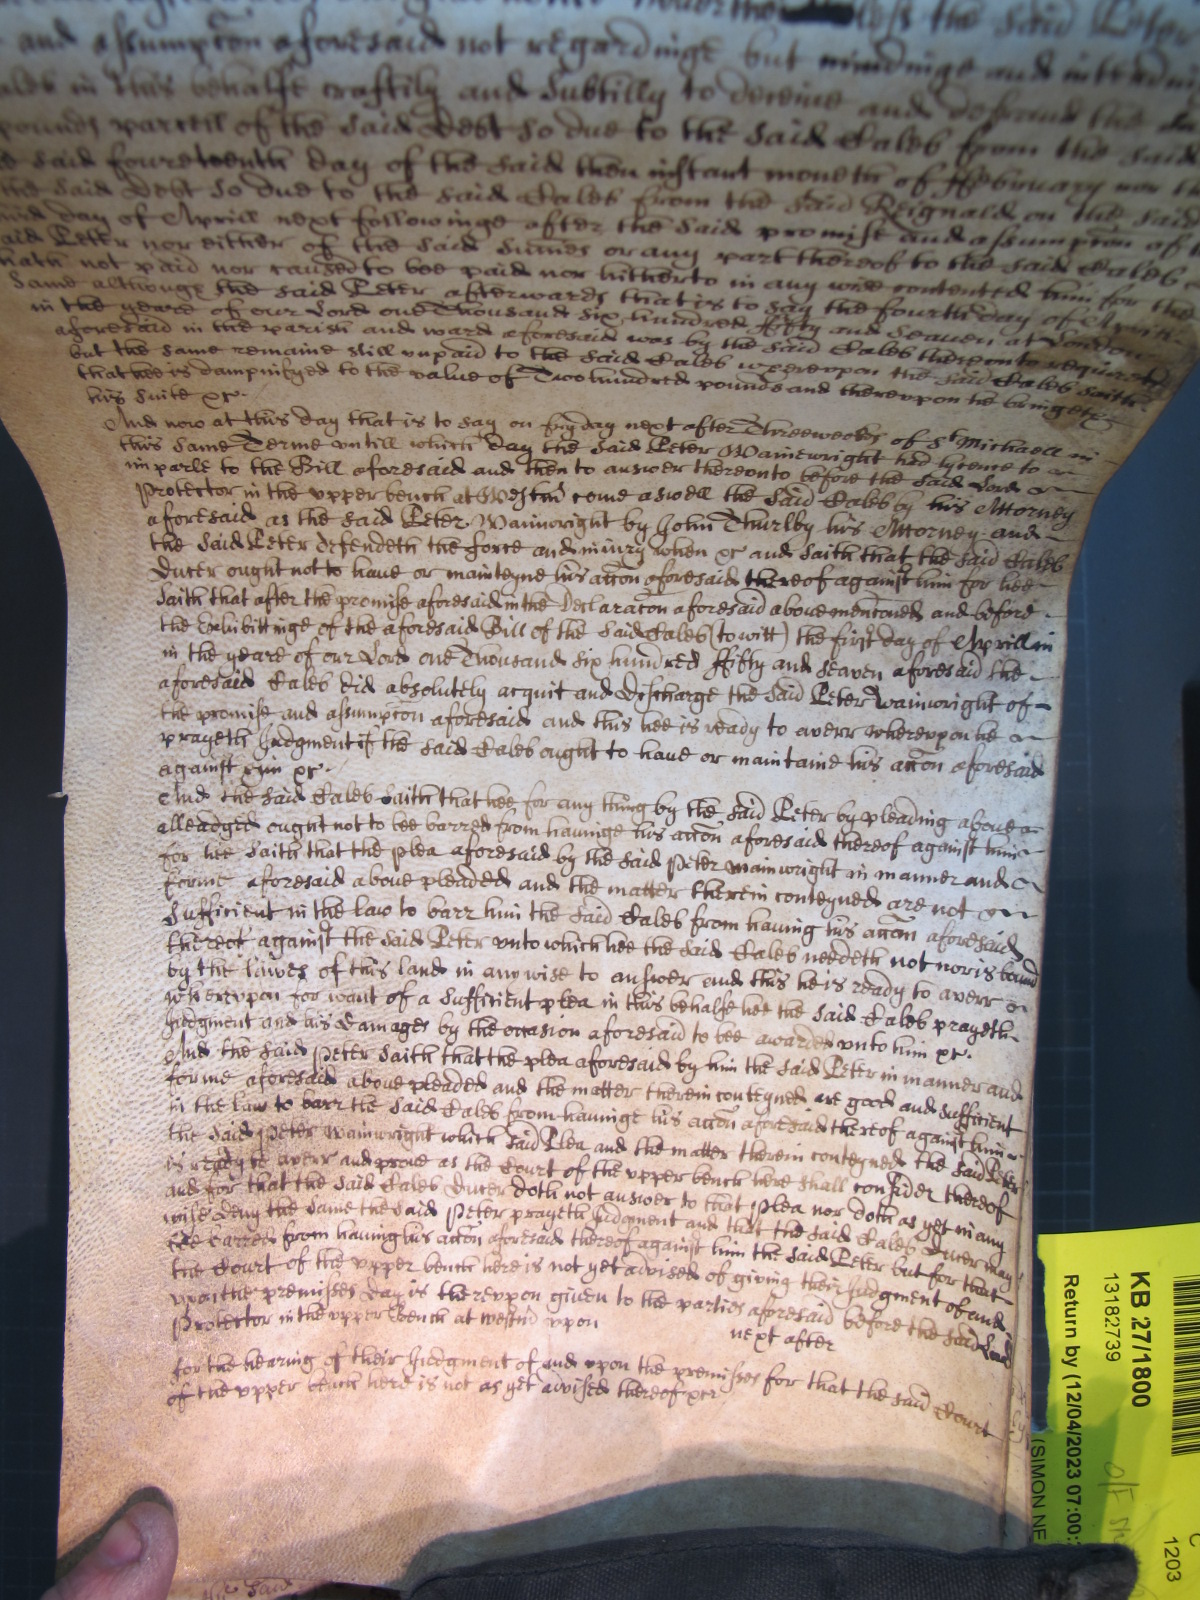 the said Peter
and assumpcon aforesaid not regardinge but mindinge and intendinge
Caleb in this behalfe craftily and subtilly to deceive and defraud the
pounds parcell of the said Debt so due to the said Caleb from the said
said fourteenth day of the said then instant moneth of ffebruary nor the
the said Debt so due to the said Caleb from the said Reignald on the said
day of Aprill next followinge after the said promise and assumpcon of
said Peter nor either of the said summes or any part thereof to the said Caleb
hath not paid nor caused to bee paid nor hitherto in any wise contented him for the
same although the said Peter afterwards that is to say the fourth day of Aprill
in the yeare of our Lord one Thousand six hundred ffifty and seaven at London
aforesaid in the parish and ward aforesaid was by the said Caleb thereunto requested
but the same remaine still unpaid to the said Caleb whereupon the said Caleb saith
that hee is dampnifyed to the value of Two hundred pounds and thereupon he bringeth
his suite &c.
And now at this day that is to say on fryday next after Three weeks of St Michaell in
this same Terme untill which day the said Peter Wainewright had lycence to
imparle to the Bill aforesaid and then to answer thereonto before the said Lord
Protector in the upper bench at Westm come aswell the said Caleb by his Attorney
aforesaid as the said Peter Wainwright by John Thurlby his Attorney and
the said Peter defendeth the force and injury when &c and saith that the said Caleb
Ducer ought not to have or mainteyne his accon aforesaid thereof against him for hee
saith that after the promise aforesaid in the Declaracon aforesaid above menconed and before
the exhibittinge of the aforesaid Bill of the said Caleb (to witt) the first day of Aprill in
in the yeare of our Lord one Thousand six hundred ffifty and seaven aforesaid the
aforesaid Caleb did absolutely acquit and discharge the said Peter Wainwright of
the promise and assumpcon aforesaid and this hee is ready to averr whereupon he
prayeth Judgment if the said Caleb ought to have or maintaine his accon aforesaid
against him &c.
And the said Caleb saith that hee for any thing by the said Peter by pleading above
alleadged ought not to bee barred from havinge his accon aforesaid thereof against him
for hee saith that the plea aforesaid by the said Peter Wainwright in manner and
forme aforesaid above pleaded and the matter therein conteyned are not
sufficient in the law to barr him the said Caleb from having his accon aforesaid
thereof against the said Peter unto which hee the said Caleb needeth not nor is bound
by the lawes of this land in any wise to answer and this he is ready to averr
Whereupon for want of a sufficient plea in this behalfe hee the said Caleb prayeth
Judgment and his damages by the occasion aforesaid to bee awarded unto him &c.
And the said Peter saith that the plea aforesaid by him the said Peter in manner and
forme aforesaid above pleaded and the matter therein conteyned are good and sufficient
in the law to barr the said Caleb from havinge his accon aforesaid thereof against him
the said Peter Wainwright which said Plea and the matter therein conteyned the said Peter
is ready to averr and prove as the Court of the upper bench here shall consider thereof
and for that the said Caleb Ducer doth not answer to that plea nor doth as yet in any
wise deny the same the said Peter prayeth Judgment and that the said Caleb Ducer may
bee barred from having his accon aforesaid thereof against him the said Peter but for that
the Court of the upper bench here is not yet advised of giving their Judgment of and
upon the premisses day is thereupon given to the parties aforesaid before the said Lord
Protector in the upper bench at Westm upon next after
for the hearing of their Judgment of and upon the premisses for that the said Court
of the upper bench here is not as yet advised thereof &c
said
KB 27/1800
13182739
Return by (12/04/2023 07:00:
(SIMON NE
1203